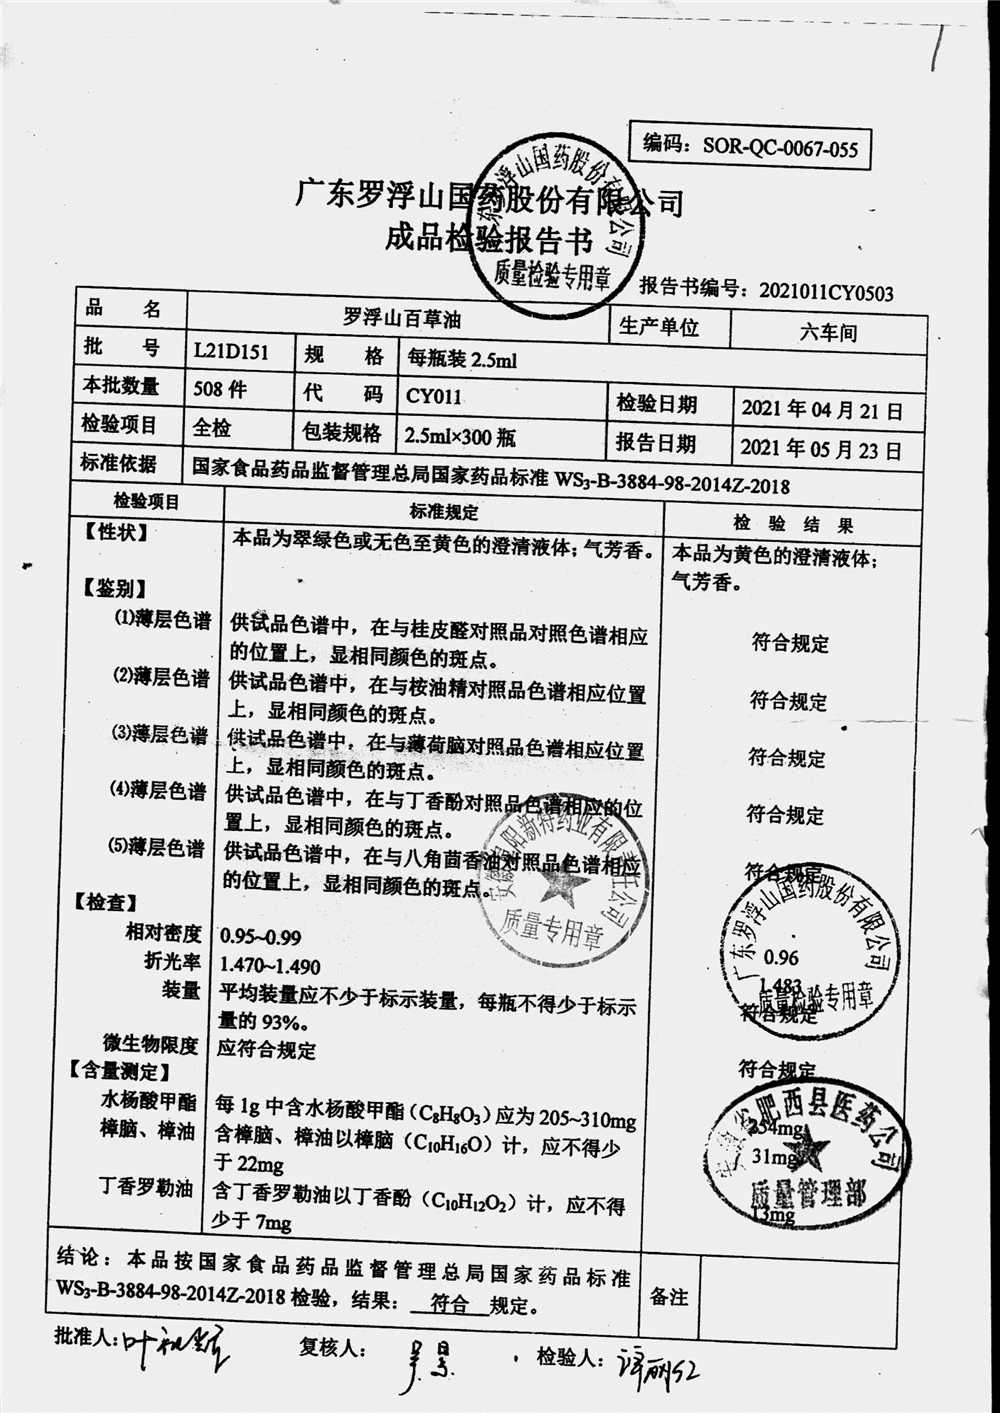 编码：SOR-QC-0067-055
广东罗浮山国药股份有限公司
成品检验报告书
广东罗浮山国药股份有限公司
质量检验专用章
报告书编号：2021011CY0503
品 名 罗浮山百草油 生产单位 六车间
批 号 L21D151 规 格 每瓶装2.5ml
本批数量 508件 代 码 CY011 检验日期 2021年04月21日
检验项目 全检 包装规格 2.5ml×300瓶 报告日期 2021年05月23日
标准依据 国家食品药品监督管理总局国家药品标准WS₃-B-3884-98-2014Z-2018
检验项目 标准规定 检 验 结 果
【性状】 本品为翠绿色或无色至黄色的澄清液体；气芳香。 本品为黄色的澄清液体；
气芳香。
【鉴别】
⑴薄层色谱 供试品色谱中，在与桂皮醛对照品对照色谱相应 符合规定
的位置上，显相同颜色的斑点。
⑵薄层色谱 供试品色谱中，在与桉油精对照品色谱相应位置 符合规定
上，显相同颜色的斑点。
⑶薄层色谱 供试品色谱中，在与薄荷脑对照品色谱相应位置 符合规定
上，显相同颜色的斑点。
⑷薄层色谱 供试品色谱中，在与丁香酚对照品色谱相应的位 符合规定
置上，显相同颜色的斑点。
⑸薄层色谱 供试品色谱中，在与八角茴香油对照品色谱相应 符合规定
的位置上，显相同颜色的斑点。
质量专用章
【检查】
相对密度 0.95~0.99 0.96
折光率 1.470~1.490 1.483
装量 平均装量应不少于标示装量，每瓶不得少于标示 符合规定
量的93%。
广东罗浮山国药股份有限公司
质量检验专用章
微生物限度 应符合规定 符合规定
【含量测定】
水杨酸甲酯 每1g中含水杨酸甲酯（C₈H₈O₃）应为205~310mg 254mg
樟脑、樟油 含樟脑、樟油以樟脑（C₁₀H₁₆O）计，应不得少 31mg
于22mg
丁香罗勒油 含丁香罗勒油以丁香酚（C₁₀H₁₂O₂）计，应不得 13mg
少于7mg
肥西县医药公司
质量管理部
结论：本品按国家食品药品监督管理总局国家药品标准 备注
WS₃-B-3884-98-2014Z-2018检验，结果： 符合 规定。
批准人： 复核人： 检验人：